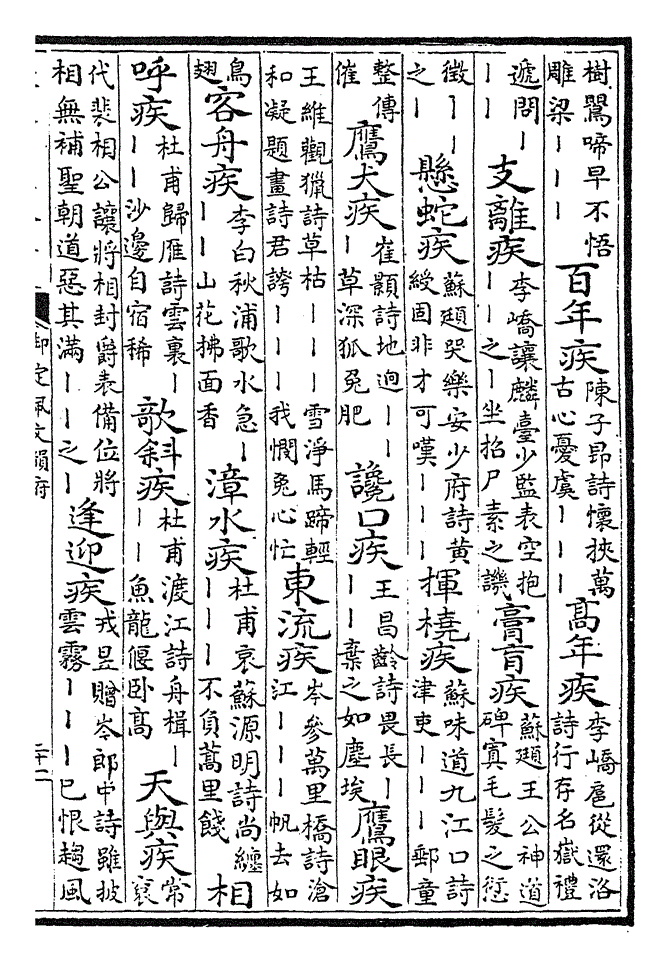 樹鶯啼早不悟雕梁丨丨丨 百年疾 陳子昻詩懷挾萬古心憂虞丨丨丨 高年疾 李嶠扈從還洛詩行存名嶽禮
遞問丨丨丨 支離疾 李嶠讓麟臺少監表空抱丨丨之丨坐招尸素之譏 膏肓疾 蘇頲王公神道碑寘毛髮之愆
徵丨丨之丨 懸蛇疾 蘇頲哭樂安少府詩黄綬固非才可嘆丨丨丨 揮橈疾 蘇味道九江口詩津吏丨丨丨郵童
整傳催 鷹犬疾 崔顥詩地迥丨丨丨草深狐兔肥 讒口疾 王昌齡詩畏長丨丨丨棄之如塵埃 鷹眼疾
王維觀獵詩草枯丨丨丨雪淨馬蹄輕和凝題畫詩君誇丨丨丨我憫兔心忙 東流疾 岑參萬里橋詩滄江丨丨丨帆去如
鳥翅 容舟疾 李白秋浦歌水急丨丨丨山花拂面香 漳水疾 杜甫哀蘇源明詩尚纏丨丨丨不負蒿里餞 相
呼疾 杜甫歸雁詩雲裏丨丨丨沙邊自宿稀 欹斜疾 杜甫渡江詩舟楫丨丨丨魚龍偃臥高 天與疾 常袞
代裴相公讓將相封爵表備位將相無補聖朝道惡其滿丨丨之丨 逢迎疾 戎昱贈岑郎中詩雖披雲霧丨丨丨已恨趨風
御定佩文韻府
二十二